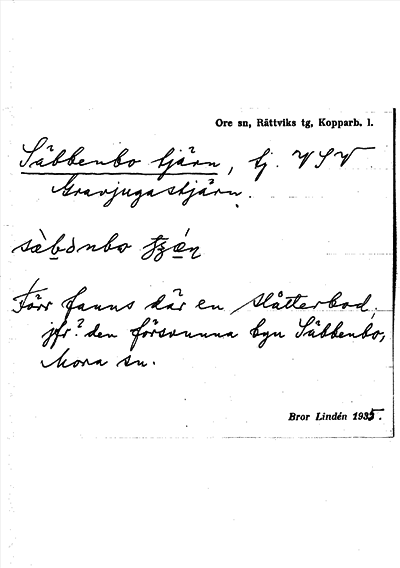 Ore sn, Rättviks tg, Kopparb. l.
Säbbenbo tjärn, tj. VSV
Gravjugastjärn.
Förr fanns där en slåtterbod,
jfr? den försvunna byn Säbbenbo,
Mora sn.
Bror Lindén 1935.